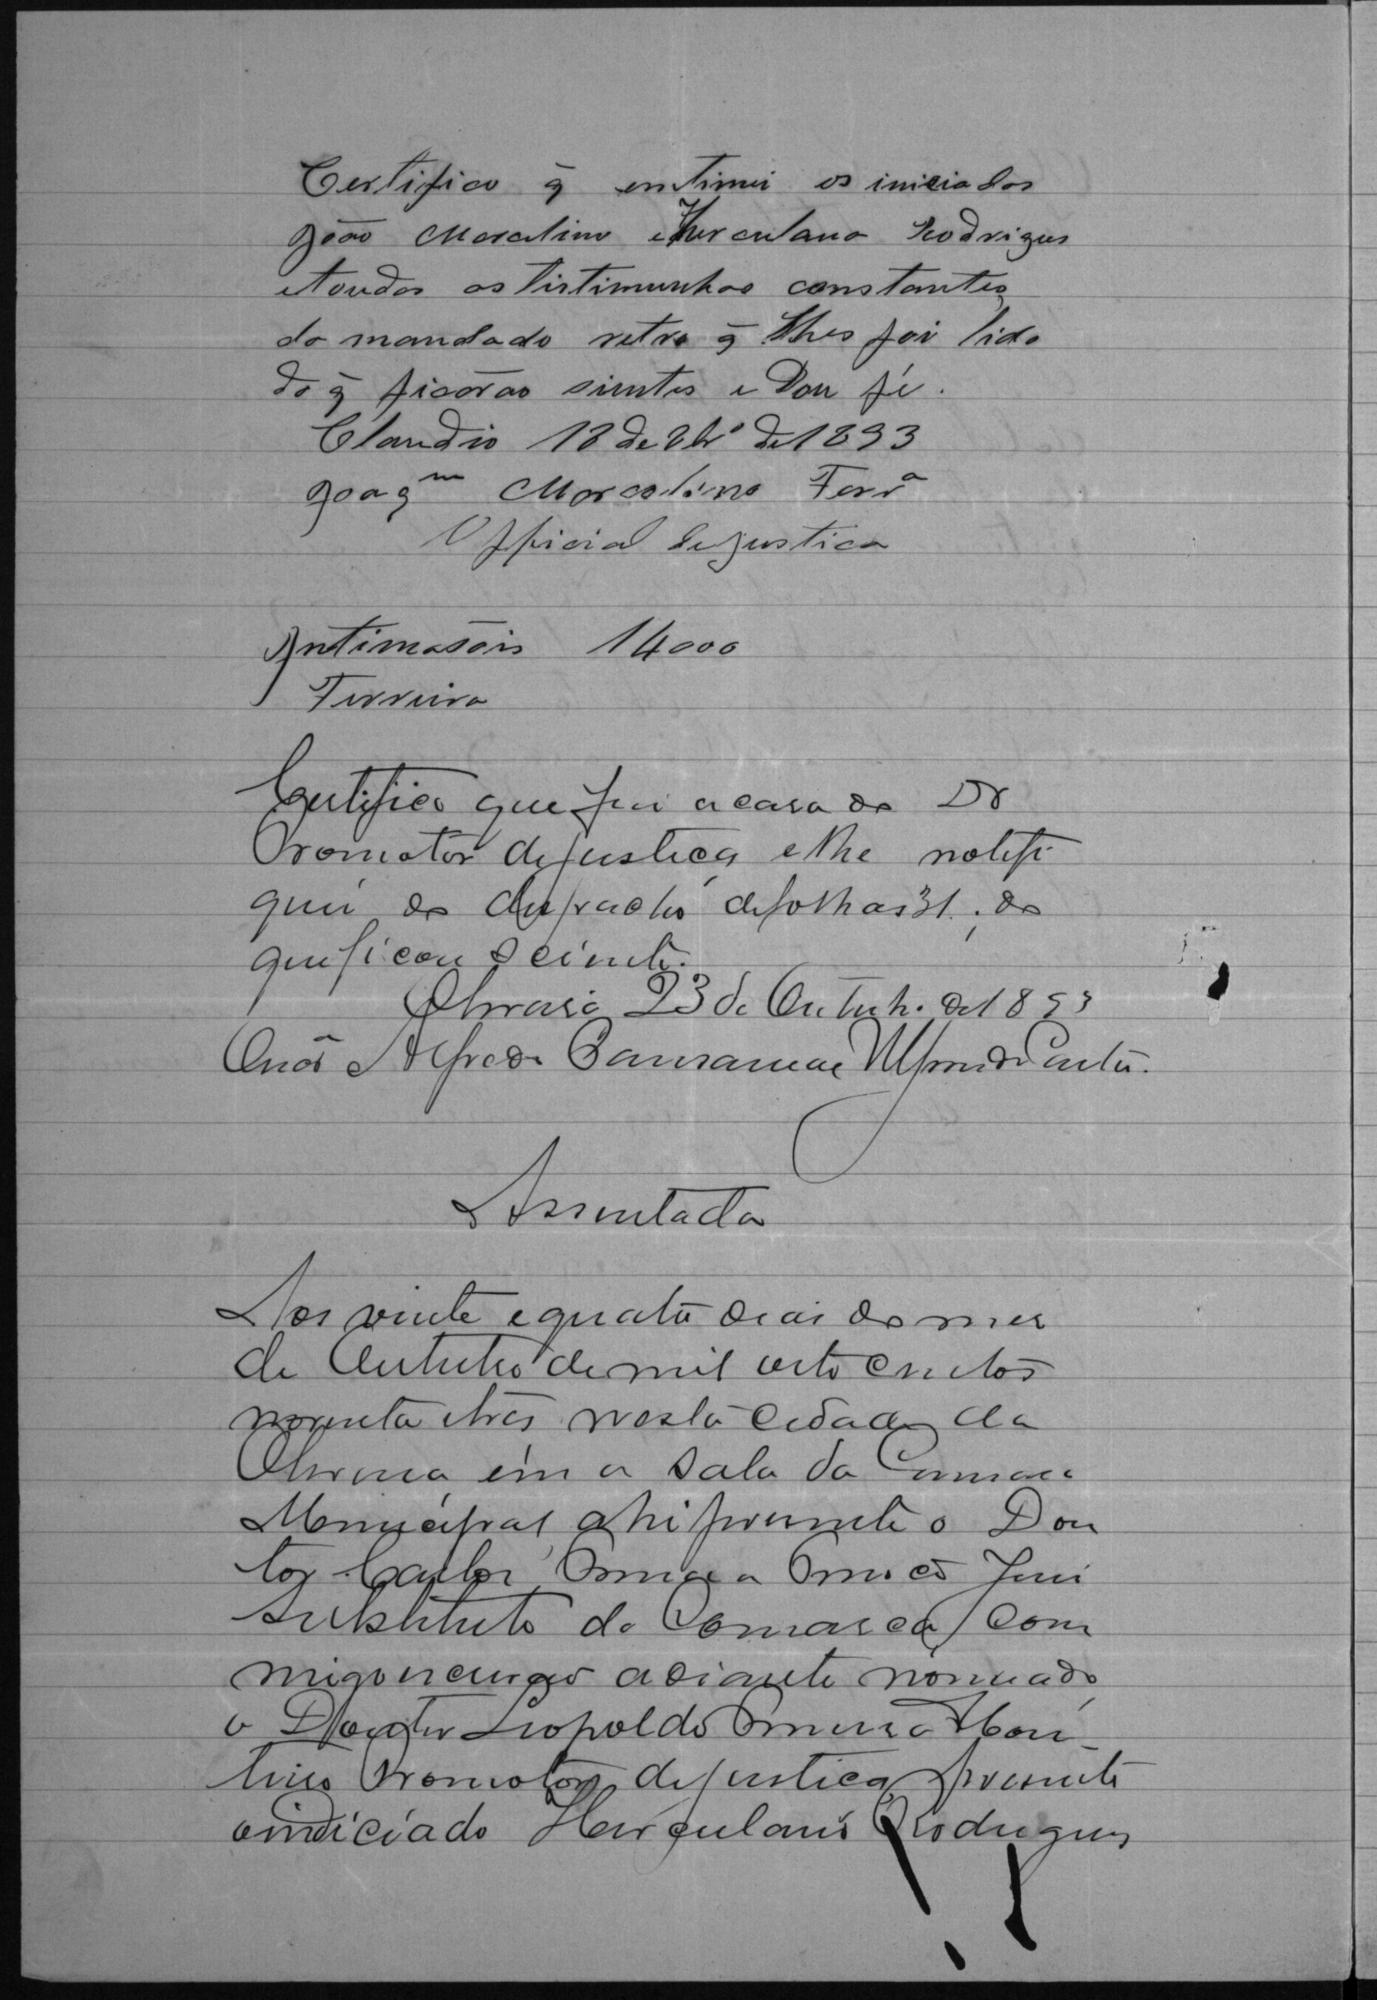 Certifico q̃ entimei os iniciados
João Marcelino e Herculano Rodrigues
etoudas as Tistimunhas constantes
do mandado retro q̃ lhes foi lido
do q̃ ficarão sientes e Dou fé.
Claudio 18 de 8bro de 1893
Joaqm Marcolino Ferra
Official de justica
Intimasõis 14000
Ferreira
Certifico que fui a casa do Dr
Promotor dejustiça e lhe notifi
quei do despacho defolhas 31. do
queficou sciente.
Oliveira 23 de Outubr. de 1893
Alfredo
Assentada
Aos vinte equatro dias do mes
de Outubro de mil oito centos
noventa etres nesta Cidade da
Oliveira em a Sala da Camara
Municipal ahi presente o Dou
tor Carlos Juis
Substituto da Comarca, com
migo escrivão adiante nomeado
o Doutor Leopoldo Mon
teiro Promotor dejustica, presente
oindiciado Herculano Rodrigues